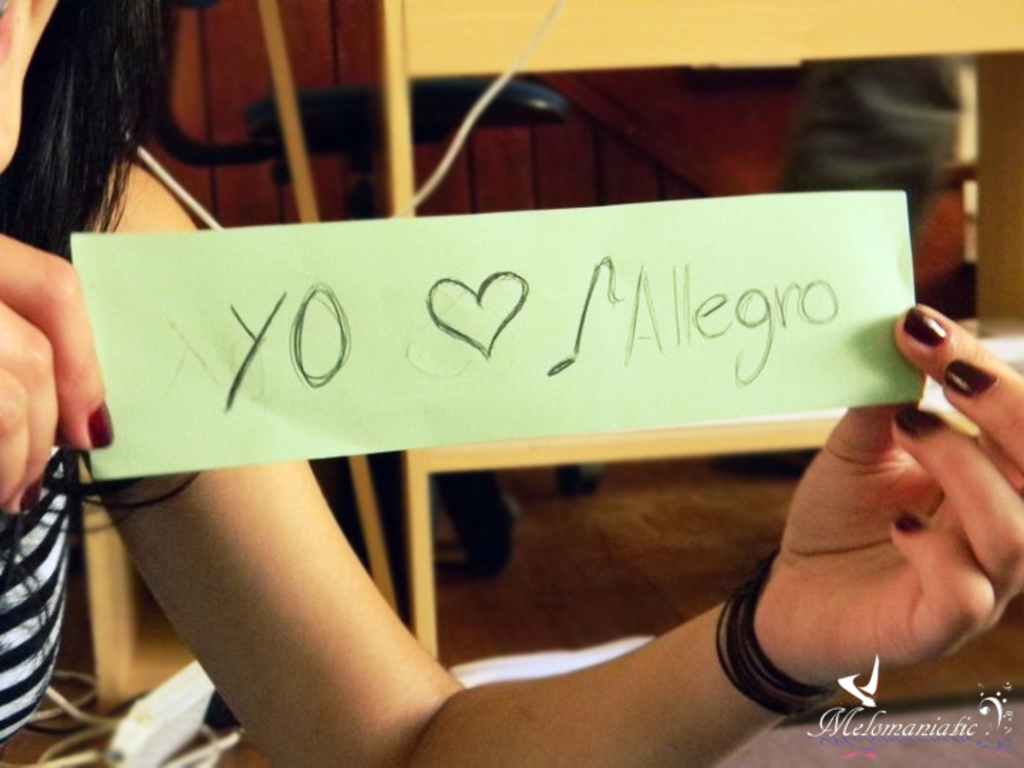 YO ♥ ♪Allegro
Melomaniatic